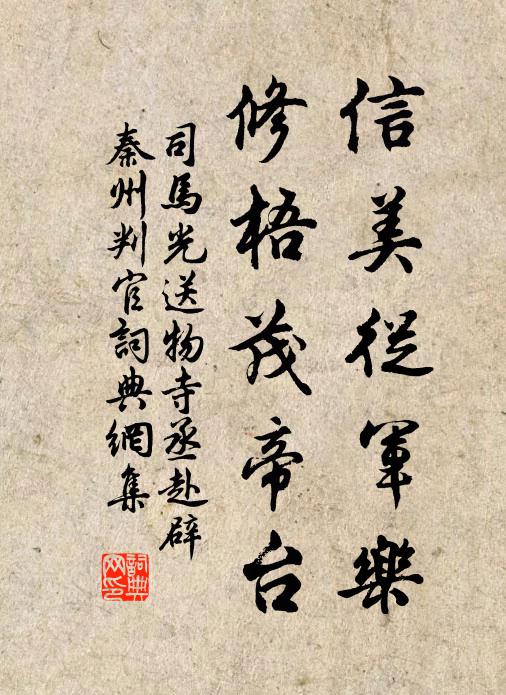 信美從軍樂
修梧茂帝台
司馬光送物寺丞赴辟
秦州判官詞典網集
詞典
网印